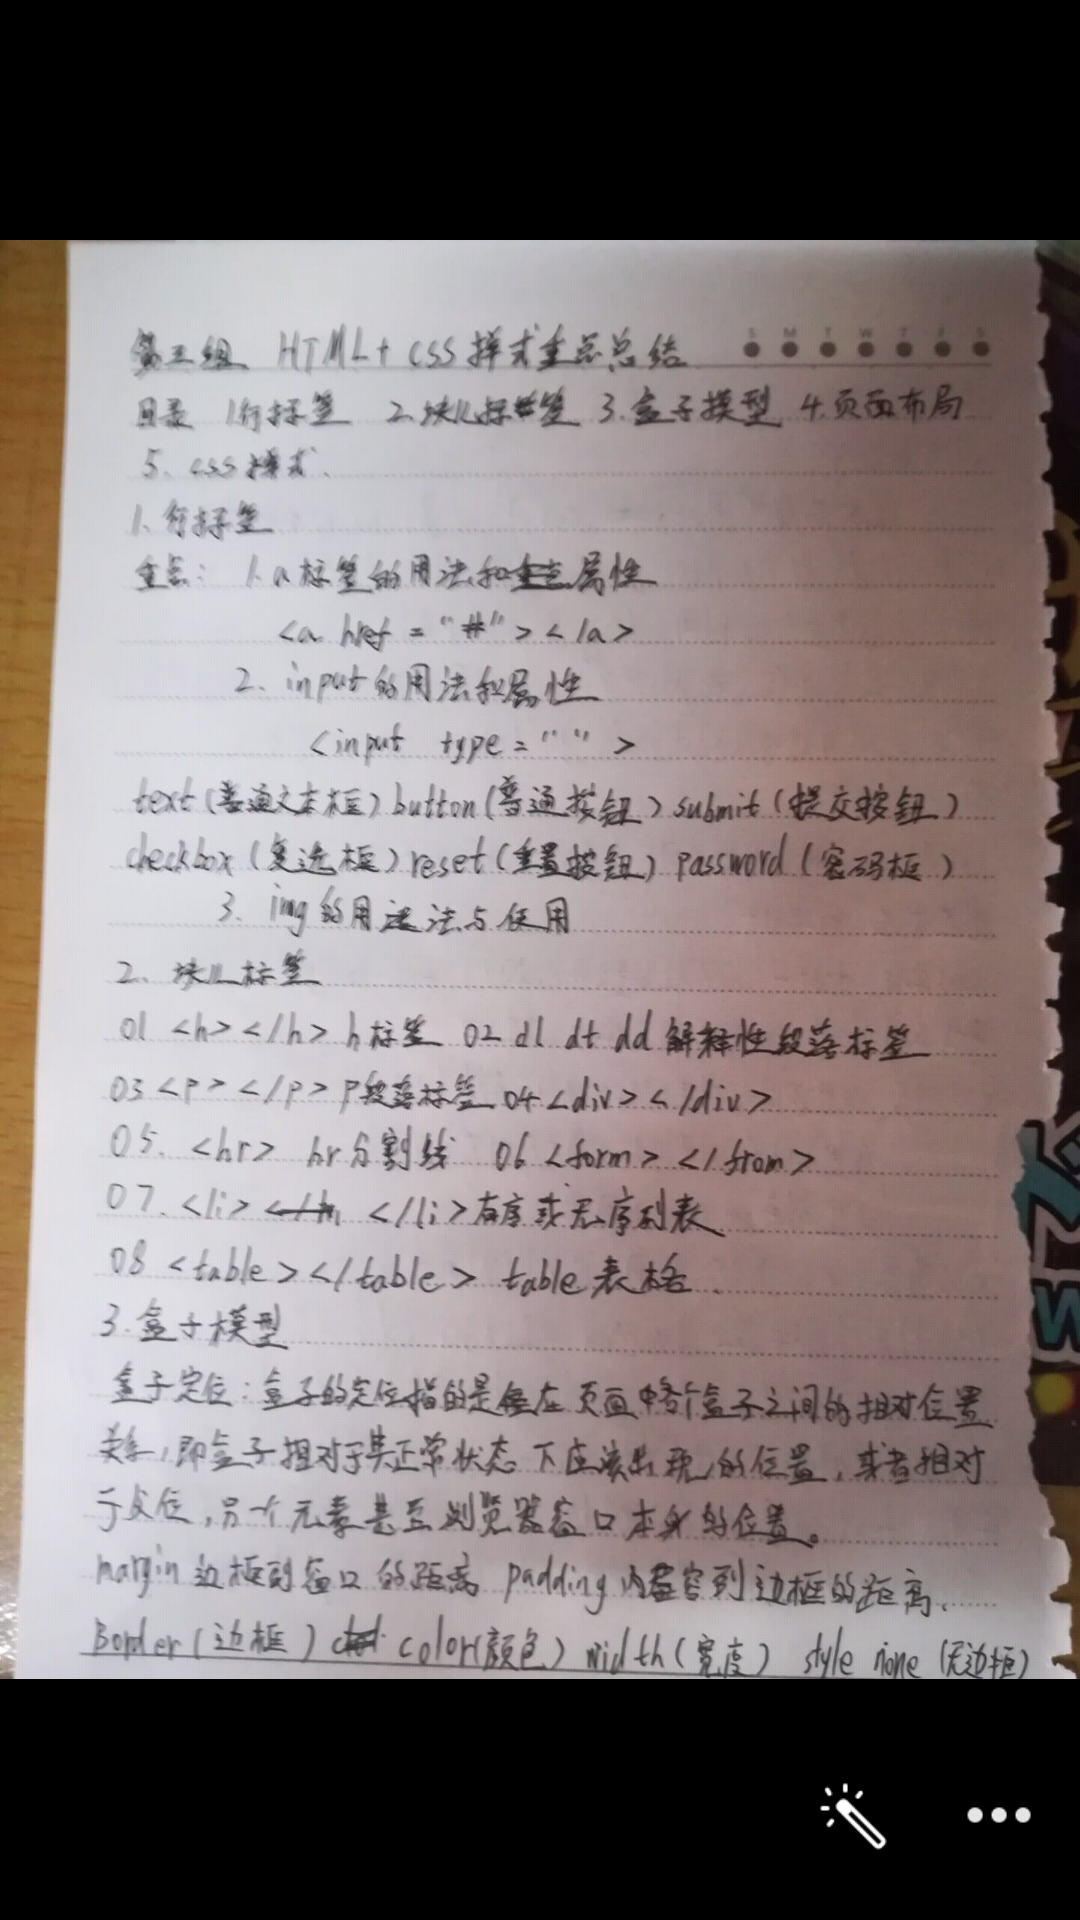 S M T W T F S
第三组 HTML+CSS样式重点总结
目录 1行标签 2.块儿标签 3.盒子模型 4.页面布局
5. css样式.
1、行标签
重点: 1.a标签的用法和属性
<a href = "#"></a>
2. input的用法和属性
<input type = " " >
text(普通文本框) button(普通按钮) submit(提交按钮)
checkbox(复选框) reset(重置按钮) password(密码框)
3. img的用法与使用
2、块儿标签
01 <h></h> h标签 02 dl dt dd 解释性段落标签
03 <p></p> p段落标签 04 <div></div>
05. <hr> hr分割线 06 <form></from>
07. <li> </li>有序或无序列表
08 <table></table> table表格.
3.盒子模型
盒子定位:盒子的定位指的是在页面中各个盒子之间的相对位置
关系,即盒子相对于其正常状态下应该出现的位置,或者相对
于父位,另一个元素甚至浏览器窗口本身的位置。
margin 边框到窗口的距离 padding 内容到边框的距离.
Border(边框) color(颜色) width(宽度) style none (无边框)